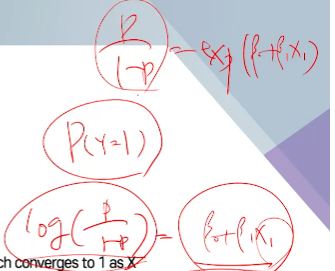 p/(1-p) = exp(β₀+β₁X₁)
P(Y=1)
log(p/(1-p)) = β₀+β₁X₁
ch converges to 1 as X